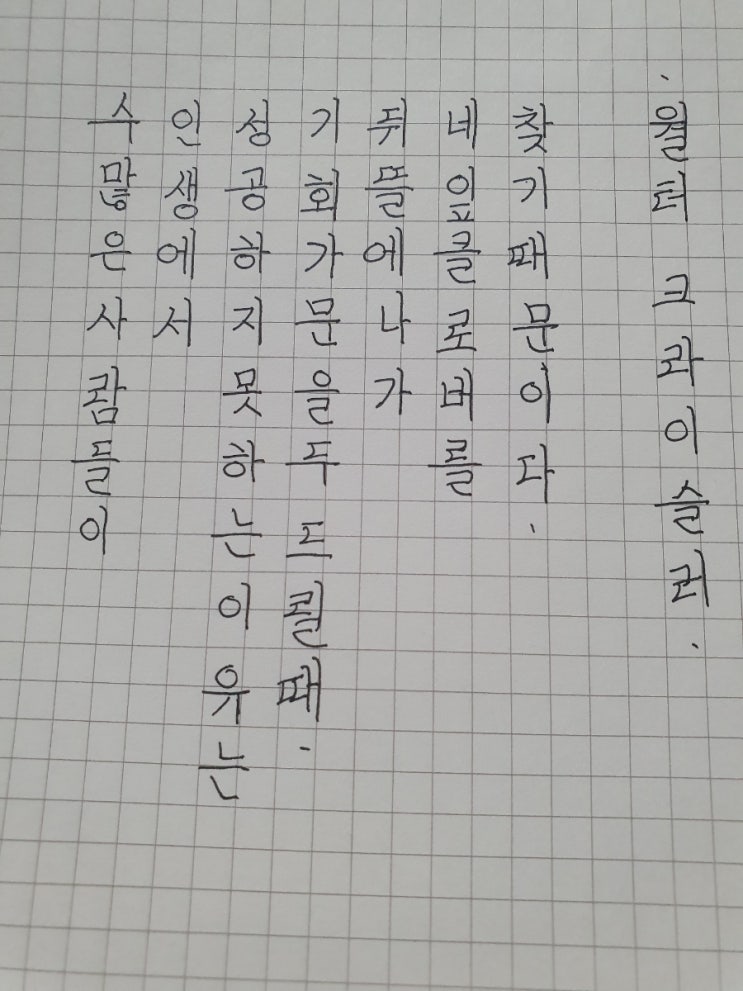 수많은사람들이
인생에서
성공하지못하는이유는
기회가문을두드릴때.
뒤뜰에나가
네잎클로버를
찾기때문이다.
.월터 크라이슬러.